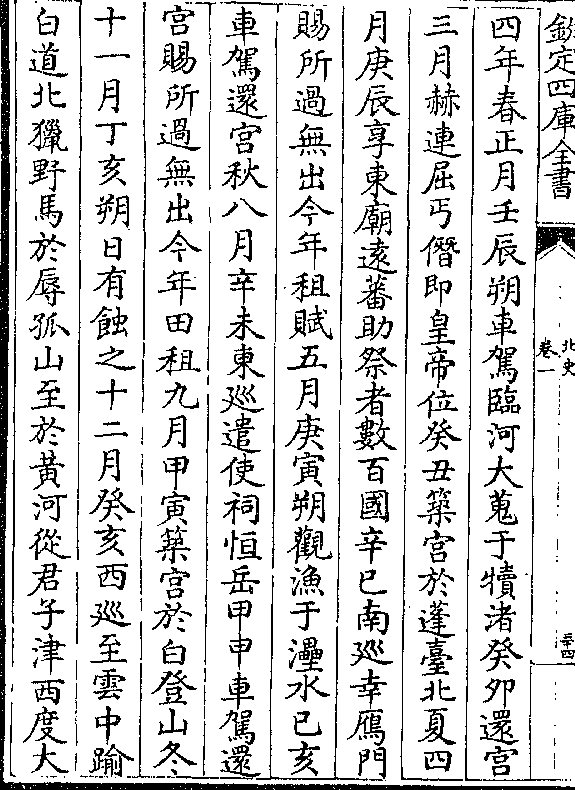 欽定四庫全書
北史
卷一
三四
四年春正月壬辰朔車駕臨河大蒐于犢渚癸夘還宫
三月赫連屈丐僭即皇帝位癸丑築宫於蓬臺北夏四
月庚辰享東廟逺蕃助祭者數百國辛巳南廵幸鴈門
賜所過無出今年租賦五月庚寅朔觀漁于㶟水已亥
車駕還宫秋八月辛未東廵遣使祠恒岳甲申車駕還
宫賜所過無出今年田租九月甲寅築宫於白登山冬
十一月丁亥朔日有蝕之十二月癸亥西廵至雲中踰
白道北獵野馬於辱孤山至於黄河從君子津西度大